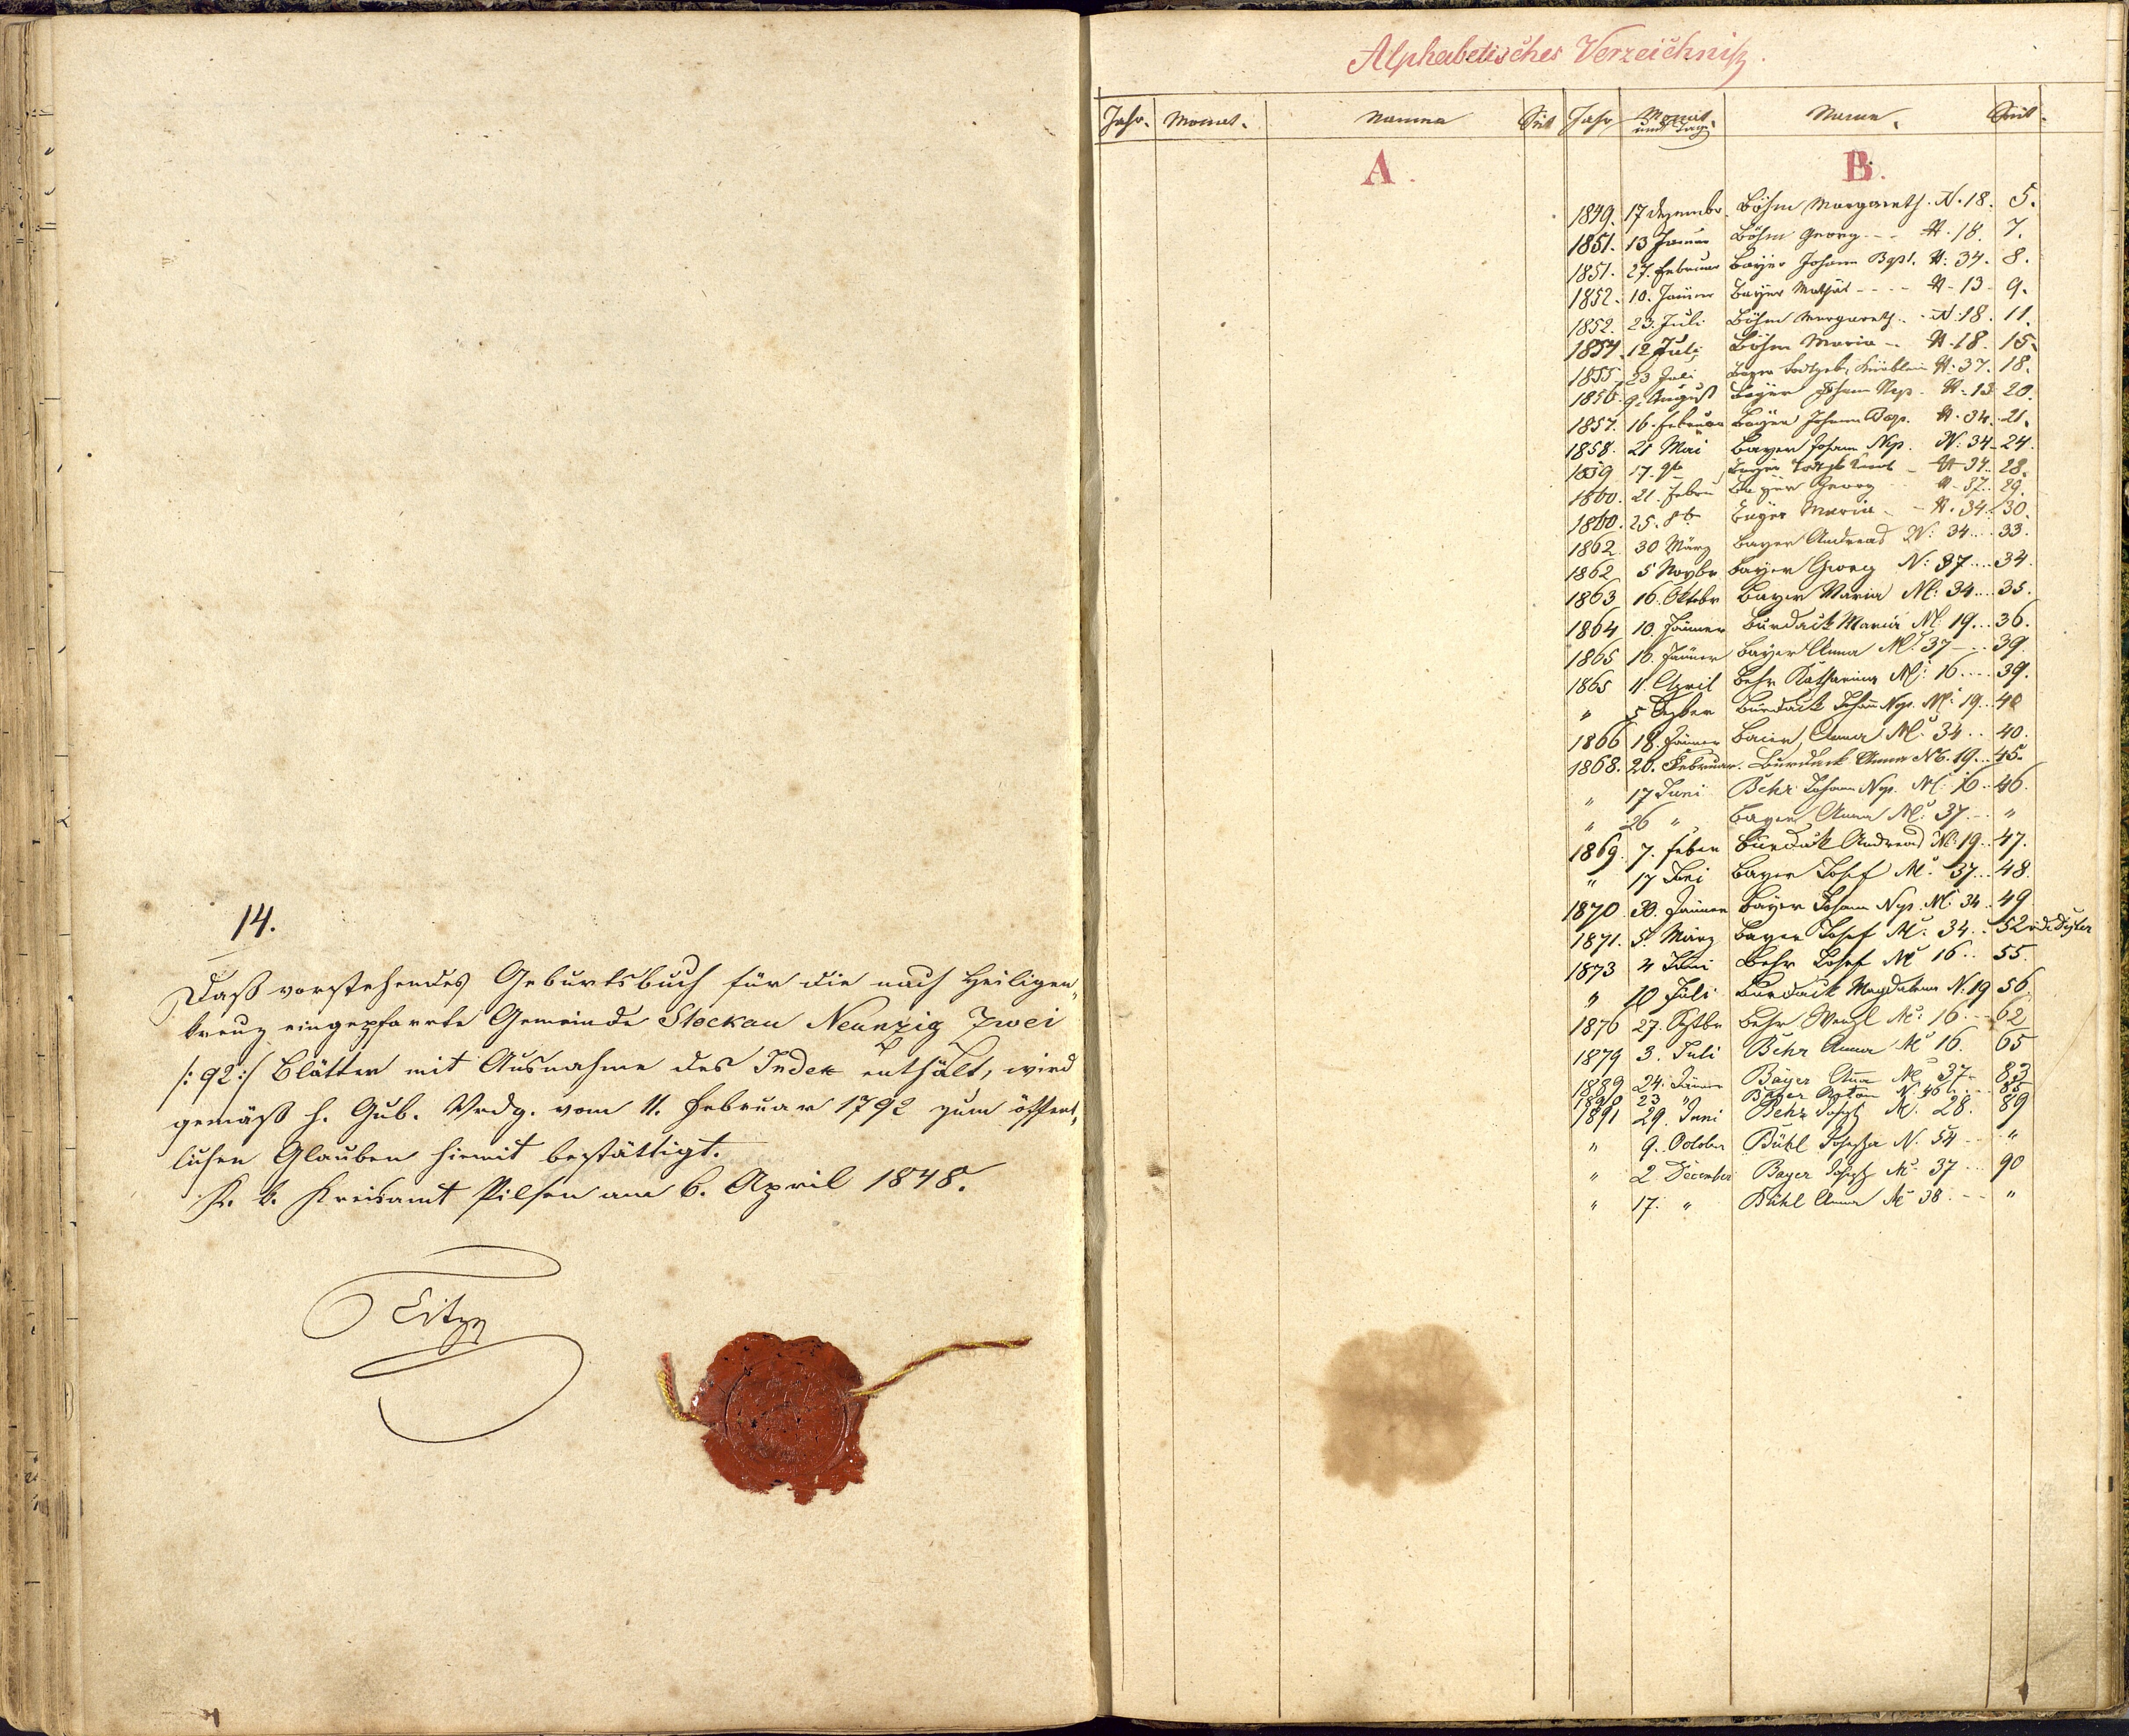 14.
Daß vorstehendes Geburtsbuch für die nach Heiligen„
kreuz eingepfarrte Gemeinde Stockau Neunzig Zwei
/: 92 :/ Blätter mit Ausnahme des Index enthält, wird
gemäß h. Gub. Vrdg. vom 11. Februar 1792 zum öffent„
lichen Glauben hiemit bestättigt.
K. k. Kreisamt Pilsen am 6. April 1848.
Alphabetisches Verzeichniß.
Jahr. Monat. Namme Seit Jahr Monat. und Tag Name. Seit
A. B.
1849. 17 Dezembr. Böhm Margareth. N. 18. 5.
1851. 13 Januar Böhm Georg - - N. 18. 7.
1851. 27. Februar Bayer Johann Bapt. N: 34. 8.
1852. 10. Jänner Bayer Mathäl - - - - N - 13 - 9.
1852. 23. Juli Böhm Margareth. - N: 18. 11.
1854. 12 Juli Böhm Maria - N. 18 15.
1855. 23 Juli Bayer Todtgeb. Knäblein N: 37. 18.
1856. 9. August Bayer Johann Nep. N. 13 20.
1857. 16. Februar Bayer Johann Bap. N. 34. 21.
1858. 21 Mai Bayer Johann Nep. N: 34 - 24.
1859 17. 9b Bayer Todtgeb - N 34.. 28.
1860. 21. Febru Bayer Georg N - 37.. 29.
1860. 25. 8b Bayer Maria - - N. 34. 30.
1862 30 März Bayer Andreas N: 34.... 33.
1862 5 Novbr Bayer Georg N: 37.... 34.
1863 16. Oktobr Bayer Maria N: 34... 35.
1864 10. Jänner Burdack Maria N: 19... 36.
1865 16. Jänner Bayer Anna N: 37 - .. 39.
1865 11. April Behr Katharina N: 16.... 39.
" 5 Dezber Burdack Johann Nep. N: 19... 40
1866 18. Jänner Baier, Anna N: 34.. 40.
1868. 20. Februar. Burdack Anna N. 19... 45.
" 17 Juni Behr Johann Nep. N: 16.. 46.
" 26 " Bayer Anna N: 37.. "
1869. 7. Feber Burdack Andreas N: 19.. 47.
" 17 Juni Bayer Josef N: 37... 48.
1870. 30. Jänner Bayer Johann Nep. N: 34.. 49
1871. 5. März Bayer Josef N: 34.. 52
1873 4 Juni Behr Josef N: 16.. 55.
" 10 Juli Burdack Magdalena N: 19 56.
1876 27. Septbr Behr Wenzl N: 16.... 62
1879 3. Juli Behr Anna N: 16. 65
1889 24. Jänner Bayer Anna N: 37 - 83
1890 23 " Bayer Anton N. 46.... 85
1891 29. Juni Behr Josef N. 28. 89
" 9. October Bühl Josefa N. 54... "
" 2 December Bayer Josef N: 37... 90
" 17. " Bühl Anna N: 38.... "